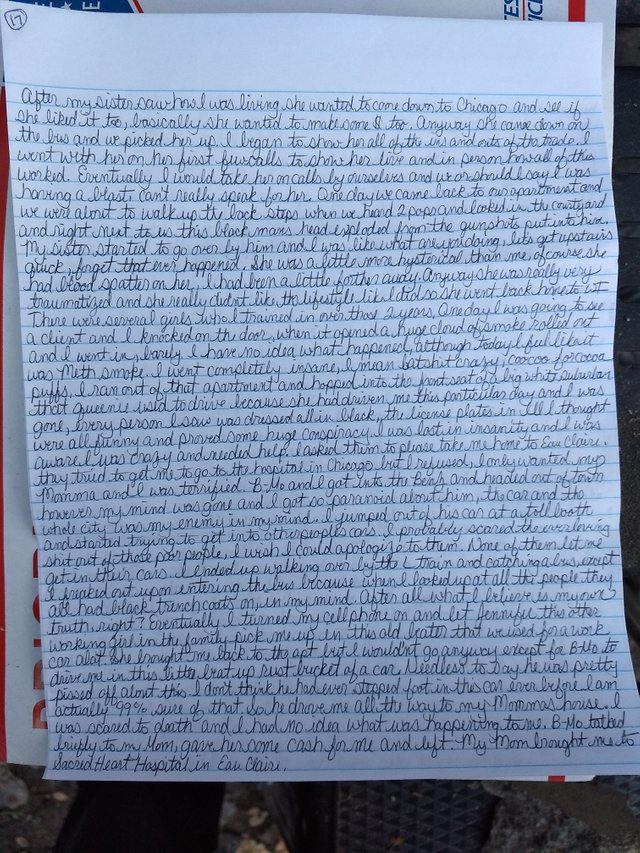 17
ES
VICE
After my sister saw how I was living she wanted to come down to Chicago and see if
she liked it too, basically she wanted to make some $ too. Anyway she came down on
the bus and we picked her up. I began to show her all of the ins and outs of the trade. I
went with her on her first few calls to show her live and in person how all of this
worked. Eventually I would take her on calls by ourselves and we or should I say I was
having a blast, can't really speak for her. One day we came back to our apartment and
we were about to walk up the back steps when we heard 2 pops and looked in the courtyard
and right next to us this black mans head exploded from the gunshots put into him.
My sister started to go over by him and I was like what are you doing, lets get upstairs
quick, forget that ever happened. She was a little more hysterical than me, of course she
had blood spatter on her, I had been a little further away. Anyway she was really very
traumatized and she really didn't like the lifestyle like I did so she went back home to WI
There were several girls who I trained in over those 2 years. One day I was going to see
a client and I knocked on the door, when it opened a huge cloud of smoke rolled out
and I went in, barely. I have no idea what happened, although today I feel like it
was Meth smoke. I went completely insane, I mean batshit crazy, coocoo for cocoa
puffs. I ran out of that apartment and hopped into the front seat of a big white suburban
that queenie used to drive because she had driven me this particular day and I was
gone, every person I saw was dressed all in black, the license plates in Ill I thought
were all funny and proved some huge conspiracy. I was lost in insanity and I was
aware I was crazy and needed help. I asked them to please take me home to Eau Claire.
They tried to get me to go to the hospital in Chicago but I refused, I only wanted my
Momma and I was terrified. B-Mo and I got into the Benz and headed out of town
however my mind was gone and I got so paranoid about him, the car and the
whole city was my enemy in my mind. I jumped out of his car at a toll booth
and started trying to get into other peoples cars. I probably scared the everloving
shit out of those poor people, I wish I could apologize to them. None of them let me
get in their cars. I ended up walking over by the L train and catching a bus, except
I freaked out upon entering the bus because when I looked up at all the people they
all had black trenchcoats on, in my mind. After all what I believe is my own
truth, right? Eventually I turned my cell phone on and let Jennifer this other
working girl in the family pick me up in this old beater that we used for a work
car alot. She brought me back to the apt but I wouldn't go anyway except for B-Mo to
drive me in this little beat up rust bucket of a car. Needless to say he was pretty
pissed off about this. I don't think he had ever stepped foot in this car ever before I am
actually 99% sure of that. So he drove me all the way to my Mommas house. I
was scared to death and I had no idea what was happening to me. B-Mo talked
briefly to my Mom, gave her some cash for me and left. My Mom brought me to
Sacred Heart Hospital in Eau Claire.